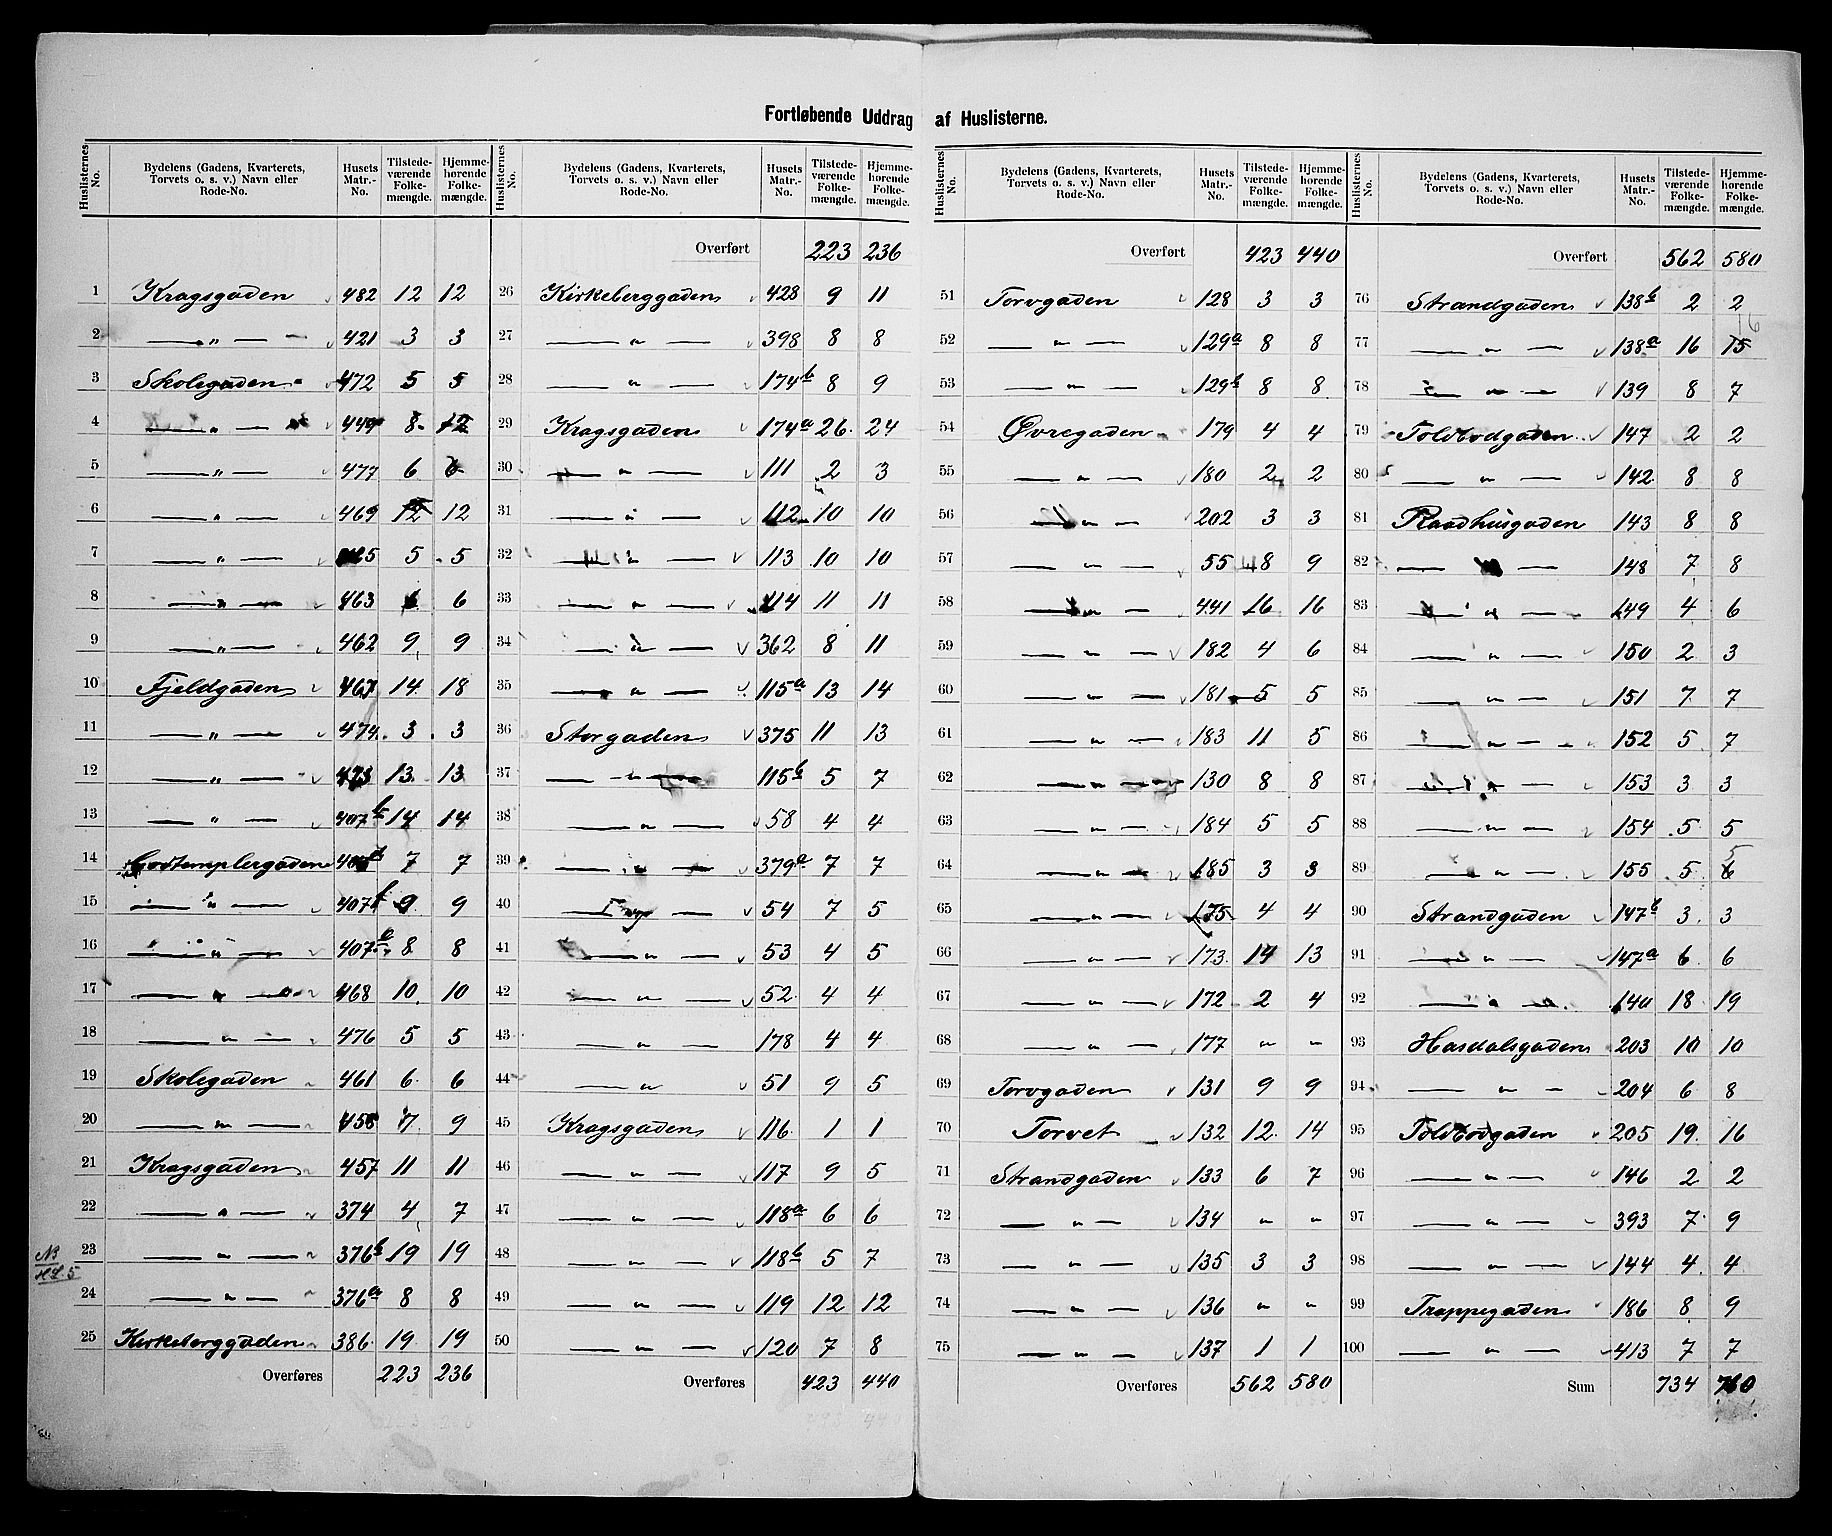 Fortløbende Uddrag af Huslisterne.
Huslisternes No. | Bydelens (Gadens, Kvarterets, Torvets o. s. v.) Navn eller Rode-No. | Husets Matr.-No. | Tilstedeværende Folkemængde. | Hjemmehørende Folkemængde.
1 Kragsgaden 482 12 12
2 — " — 421 3 3
3 Skolegaden 472 5 5
4 — " — 449 8 12
5 — " — 477 6 6
6 — " — 469 12 12
7 — " — 5 5
8 — " — 463 6 6
9 — " — 462 9 9
10 Fjeldgaden 467 14 18
11 — " — 474 3 3
12 — " — 473 13 13
13 — " — 407b 14 14
14 Godtemplergaden 7 7
15 — " — 407 9 9
16 — " — 407 8 8
17 — " — 468 10 10
18 — " — 476 5 5
19 Skolegaden 461 6 6
20 — " — 458 7 9
21 Kragsgaden 457 11 11
22 — " — 374 4 7
NB
HL. 5
23 — " — 376b 19 19
24 — " — 376a 8 8
25 Kirkeberggaden 386 19 19
Overføres 223 236
Huslisternes No. | Bydelens (Gadens, Kvarterets, Torvets o. s. v.) Navn eller Rode-No. | Husets Matr.-No. | Tilstedeværende Folkemængde. | Hjemmehørende Folkemængde.
Overført 223 236
26 Kirkeberggaden 428 9 11
27 — " — 398 8 8
28 — " — 174b 8 9
29 Kragsgaden 174a 26 24
30 — " — 111 2 3
31 — " — 112 10 10
32 — " — 113 10 10
33 — " — 114 11 11
34 — " — 362 8 11
35 — " — 115a 13 14
36 Storgaden 375 11 13
37 — " — 115b 5 7
38 — " — 58 4 4
39 — " — 379a 7 7
40 — " — 54 7 5
41 — " — 53 4 5
42 — " — 52 4 4
43 — " — 178 4 4
44 — " 51 9 5
45 Kragsgaden 116 1 1
46 — " — 117 9 5
47 — " — 118a 6 6
48 — " — 118b 5 7
49 — " — 119 12 12
50 — " — 120 7 8
Overføres 423 440
Huslisternes No. | Bydelens (Gadens, Kvarterets, Torvets o. s. v.) Navn eller Rode-No. | Husets Matr.-No. | Tilstedeværende Folkemængde. | Hjemmehørende Folkemængde.
Overført 423 440
51 Torvgaden 128 3 3
52 — " — 129a 8 8
53 — " — 129b 8 8
54 Øvregaden 179 4 4
55 — " — 180 2 2
56 — " — 202 3 3
57 — " — 55 8 9
58 — " — 441 16 16
59 — " — 182 4 6
60 — " — 181 5 5
61 — " — 183 11 5
62 — " — 130 8 8
63 — " — 184 5 5
64 — " — 185 3 3
65 — " — 175 4 4
66 — " — 173 14 13
67 — " — 172 2 4
68 — " — 177 " "
69 Torvgaden 131 9 9
70 Torvet 132 12 14
71 Strandgaden 133 6 7
72 — " — 134 " "
73 — " — 135 3 3
74 — " — 136 " "
75 — " — 137 1 1
Overføres 562 580
Huslisternes No. | Bydelens (Gadens, Kvarterets, Torvets o. s. v.) Navn eller Rode-No. | Husets Matr.-No. | Tilstedeværende Folkemængde. | Hjemmehørende Folkemængde.
Overført 562 580
76 Strandgaden 138b 2 2
77 — " — 138a 16 15 16
78 — " — 139 8 7
79 Toldbodgaden 147 2 2
80 — " — 142 8 8
81 Raadhusgaden 143 8 8
82 — " — 148 7 8
83 — " — 149 4 6
84 — " — 150 2 3
85 — " — 151 7 7
86 — " — 152 5 7
87 — " — 153 3 3
88 — " — 154 5 5
89 — " — 155 5 6 5
90 Strandgaden 147b 3 3
91 — " — 147a 6 6
92 — " — 140 18 19
93 Hasdalsgaden 203 10 10
94 — " — 204 6 8
95 Toldbodgaden 205 19 16
96 — " — 146 2 2
97 — " — 393 7 9
98 — " — 144 4 4
99 Trappegaden 186 8 9
100 — " — 413 7 7
Sum 734 760